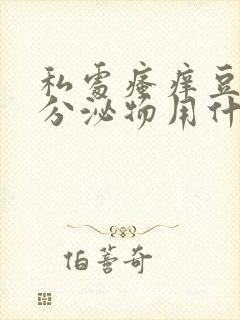 私處瘙痒豆
分泌物用什
伯蒼奇